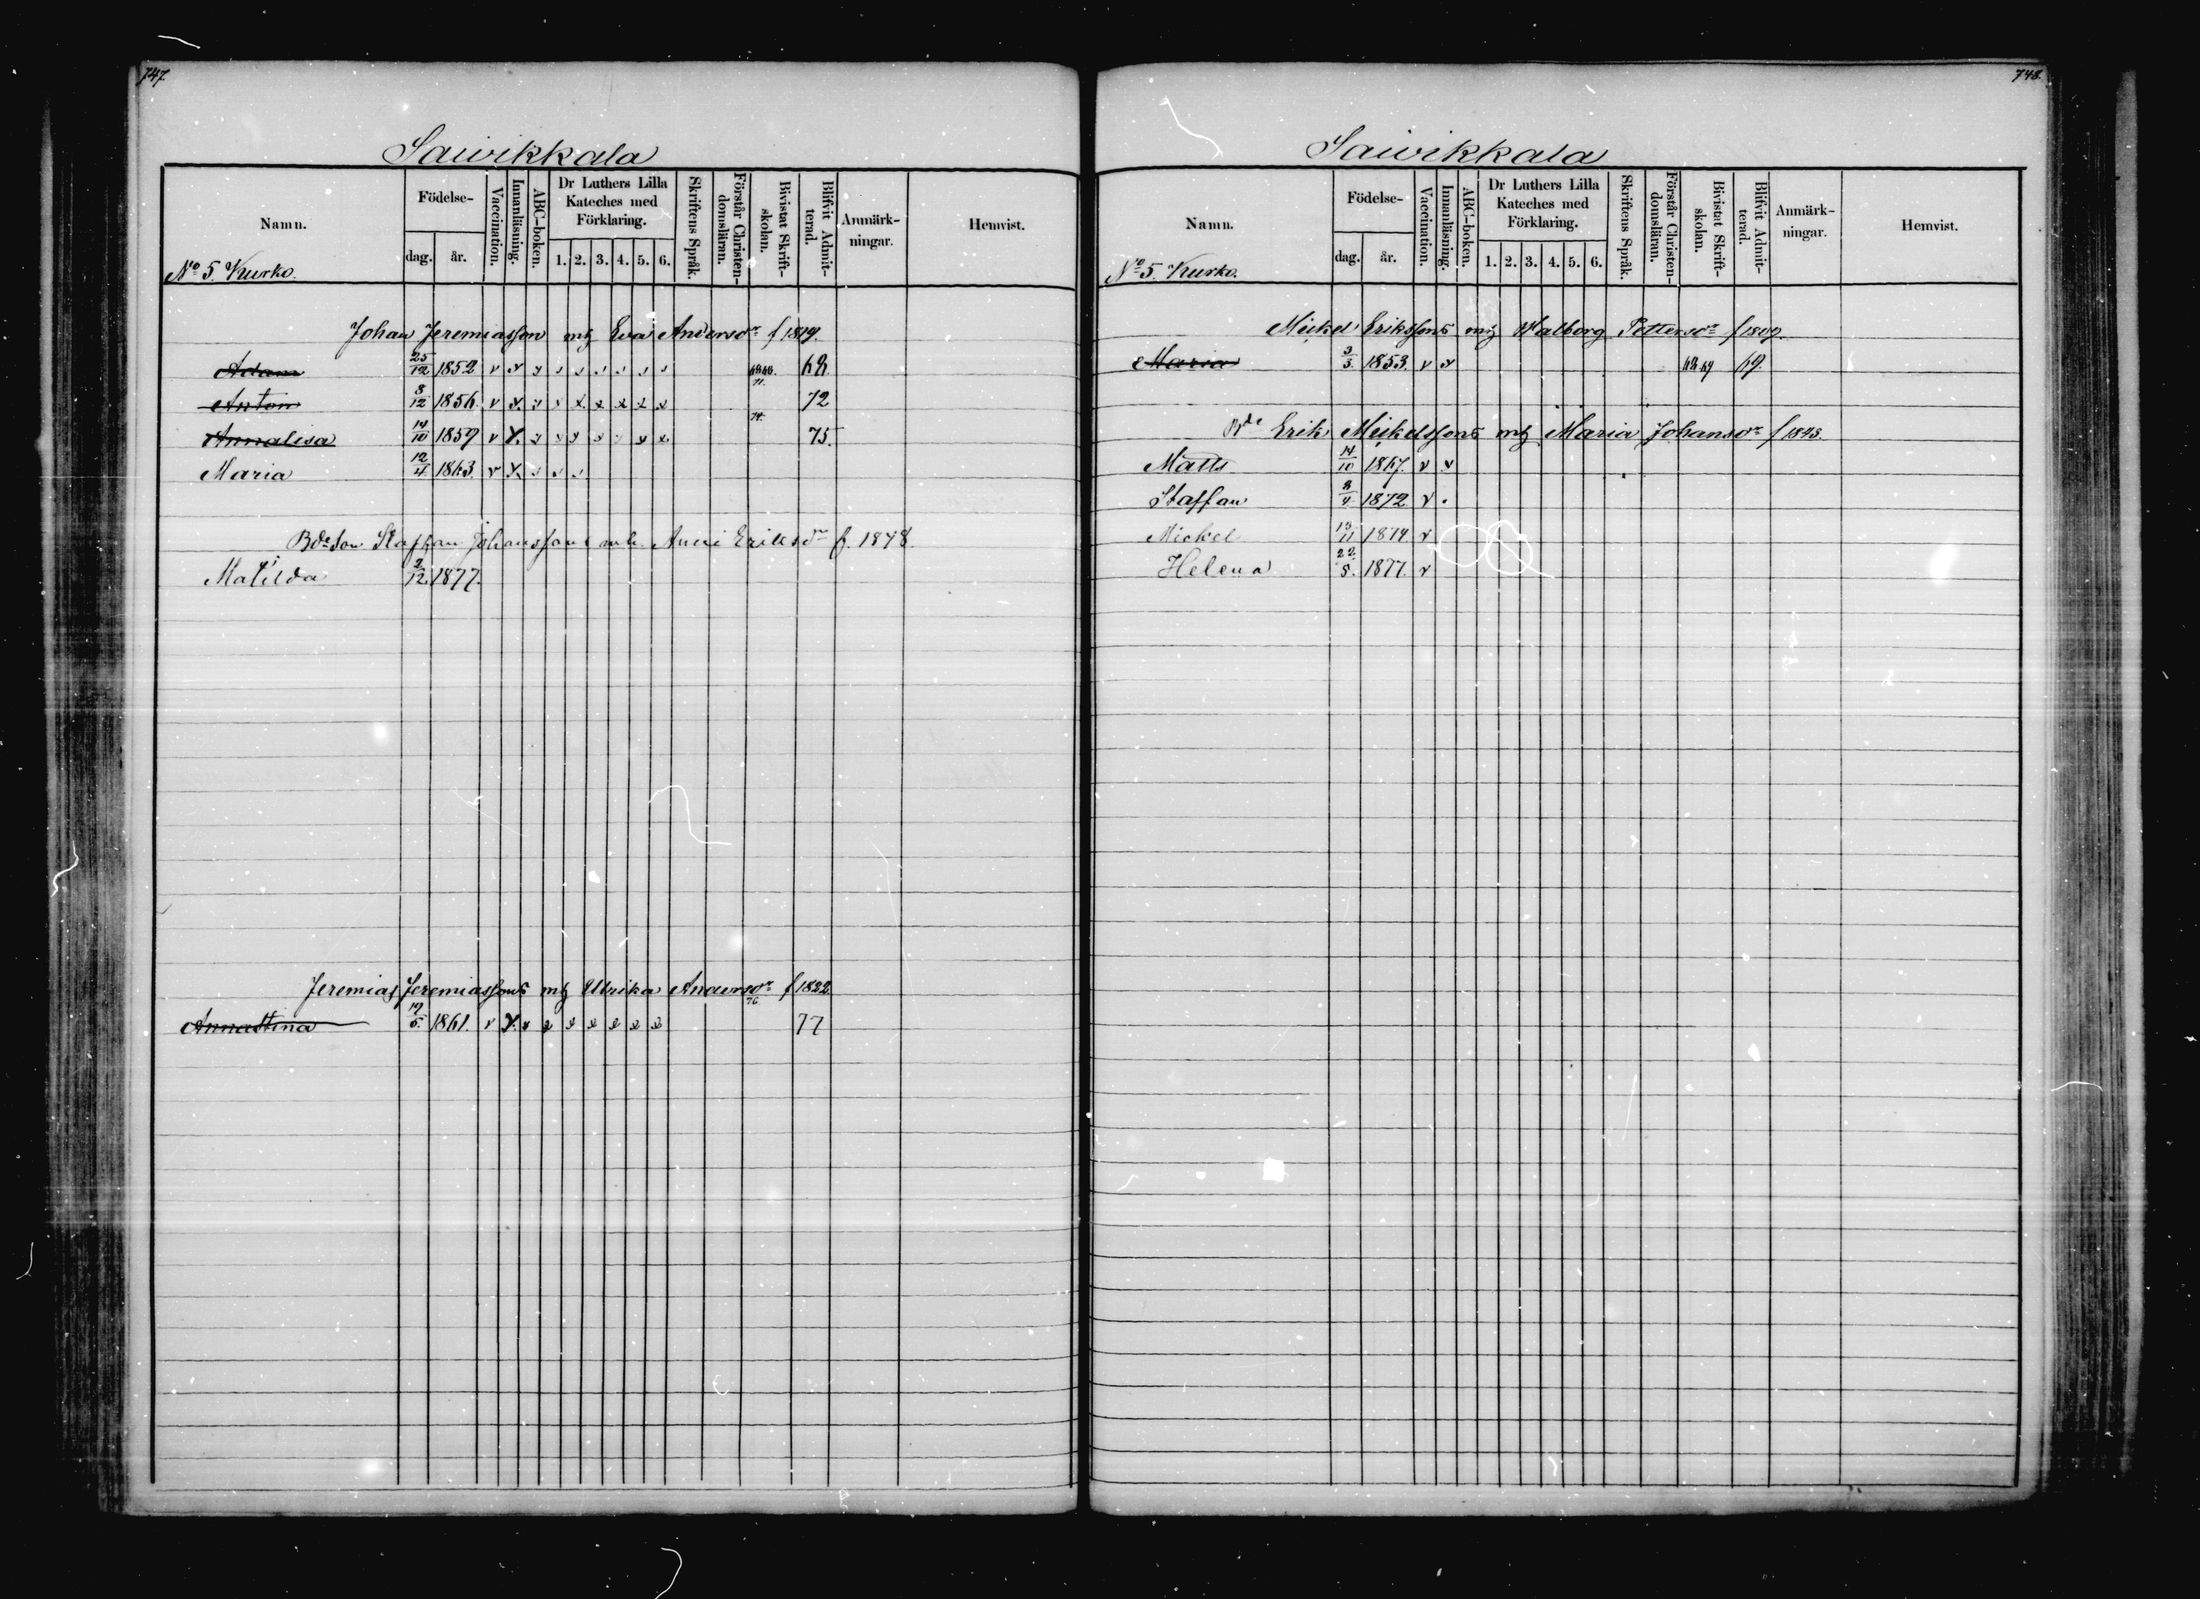 747.
Saivikkala
Namn.
Födelse-
dag. år.
Vaccination.
Innanläsning.
ABC-boken.
Dr Luthers Lilla
Kateches med
Förklaring.
1. 2. 3. 4. 5. 6.
Skriftens Språk.
Förstår Christen-
domsläran.
Bivistat Skrift-
skolan.
Blifvit Admit-
terad.
Anmärk-
ningar.
Hemvist.
No 5. Kurko.
Johan Jeremiasson mh Eva Andersdr f 1819.
Adam 25/12 1852 v v 68
71.
Anton 8/12 1856. v 72
74.
Annalisa 14/10 1859 v 75.
Maria 12/4 1863. v
Bdeson Staffan Johanssons mh. Anni Eriksdr f. 1848.
Matilda 2/12. 1877.
Jeremias Jeremiassons mh Ulrika Andersdr f 1822
76
Annastina 19/5. 1861. v 77
748.
Saivikkala
Namn.
Födelse-
dag. år.
Vaccination.
Innanläsning.
ABC-boken.
Dr Luthers Lilla
Kateches med
Förklaring.
1. 2. 3. 4. 5. 6.
Skriftens Språk.
Förstår Christen-
domsläran.
Bivistat Skrift-
skolan.
Blifvit Admit-
terad.
Anmärk-
ningar.
Hemvist.
No 5. Kurko.
Mickel Erikssons mh Walborg Pettersdr f 1809.
Maria 3/3. 1853. v v 68.69 69.
Bde Erik Mickelssons mh Maria Johansdr f 1843.
Matts 14/10 1867. v v
Staffan 8/4 1872 v
Mickel 13/11 1874. v
Helena 22/8. 1877. v